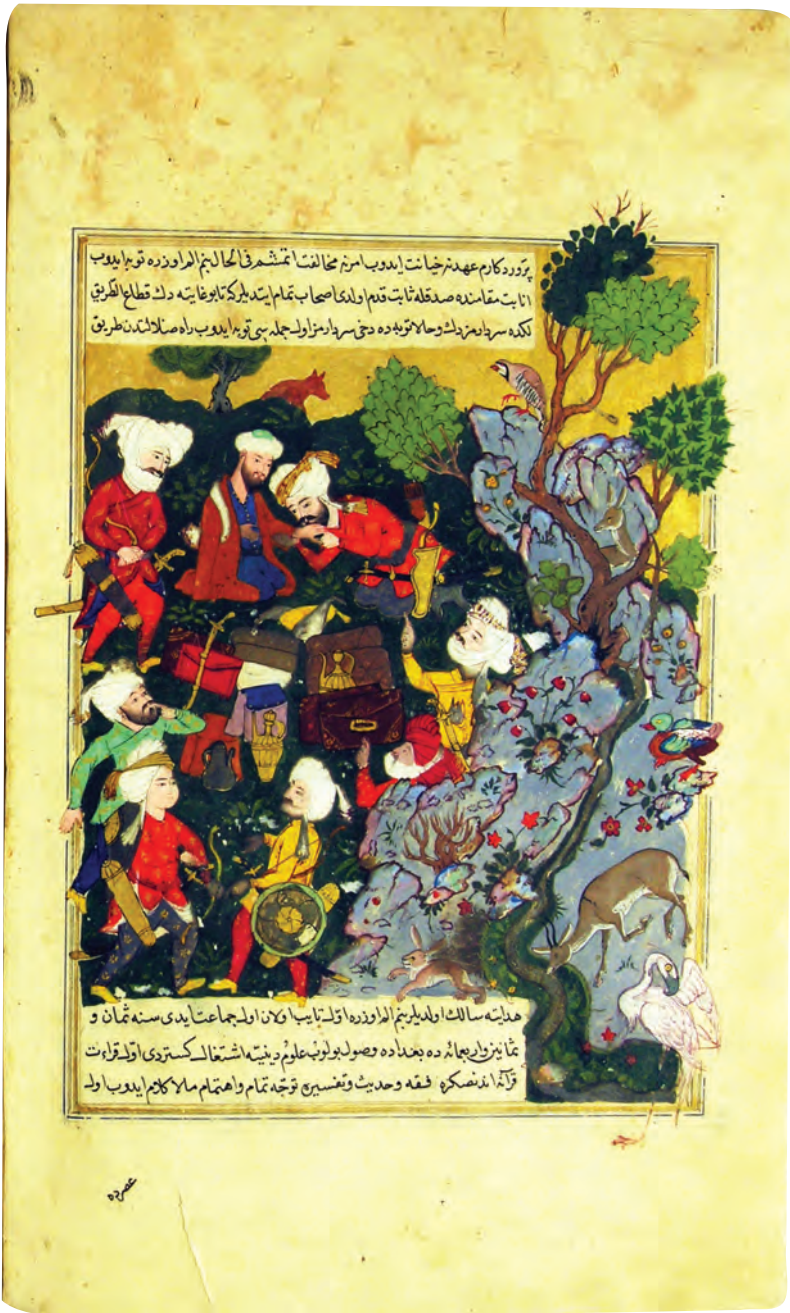 پروردکارم عهدنه خیانت ایدوب امرنه مخالفت اتمشم فی الحال بنم الم اوزره توبه ایدوب
انابت مقامنده صدقله ثابت قدم اولدی اصحاب تمام ایتدیلر که تا بو غایته دك قطاع الطریق
لکده سردارمزدك وحالا توبه ده دخی سردارمز اول جمله سی توبه ایدوب راه ضلالتدن طریق
هدایته سالك اولدیلر بنم الم اوزره اول تایب اولان اول جماعت ایدی سنه ثمان و
ثمانین واربعمائه ده بغداده وصول بولوب علوم دینیه اشتغالـ کستردی اول قراءت
قرآن اندنصکره فقه وحدیث وتفسیره توجه تمام واهتمام مالاکلام ایدوب اول
عصرده